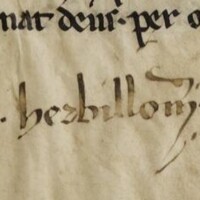 nat deus. per o
. herbillom